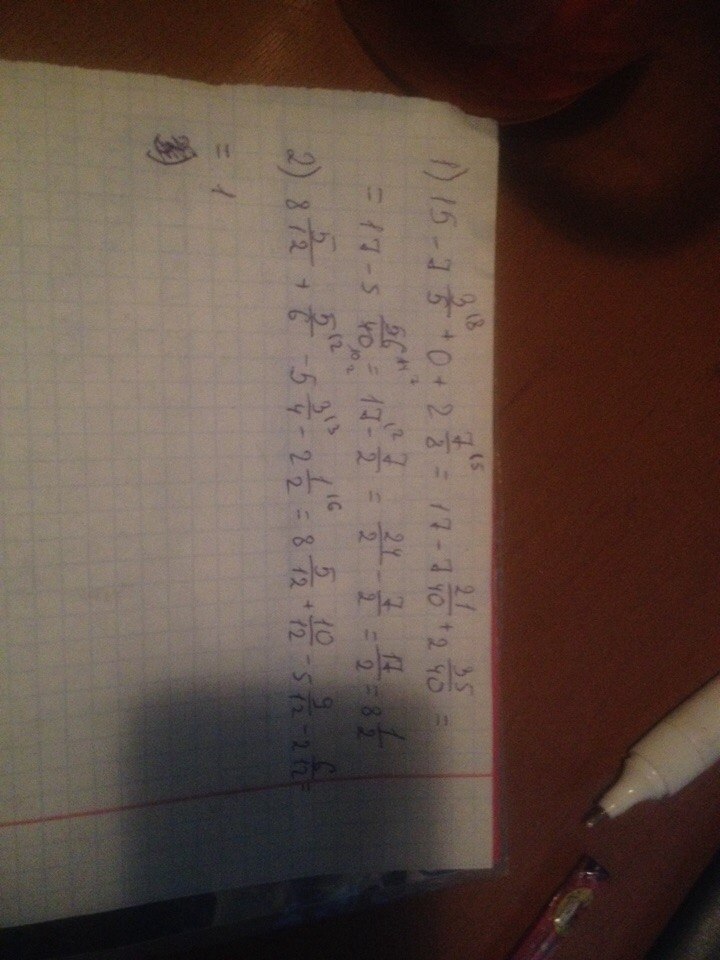 1) 15 - 7 3/5 |8 + 0 + 2 7/8 |5 = 17 - 7 21/40 + 2 35/40 =
= 17 - 5 56/40 = 17 - 7/2 = 24/2 - 7/2 = 17/2 = 8 1/2
2) 8 5/12 + 5/6 |2 - 5 3/4 |3 - 2 1/2 |6 = 8 5/12 + 10/12 - 5 9/12 - 2 6/12 =
= 1